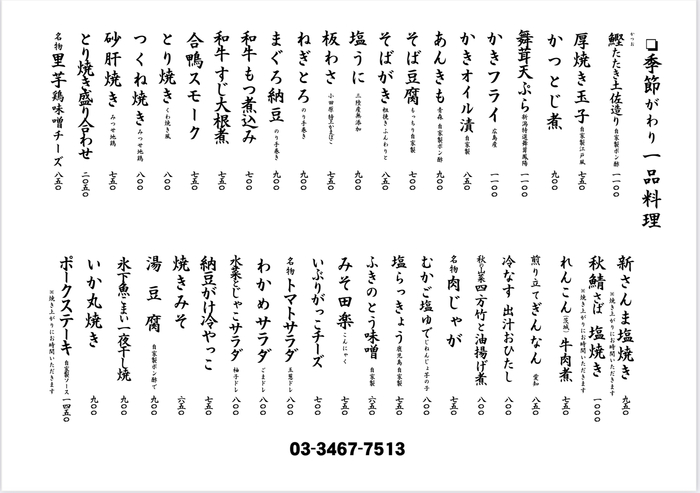 ❏季節がわり 一品料理
鰹たたき土佐造り 自家製ポン酢 一一〇〇
かつお
厚焼き玉子 自家製江戸風 七五〇
かつとじ煮 九〇〇
舞茸天ぷら 新潟特選舞茸鳳陽 一一〇〇
かきフライ 広島産 一一〇〇
かきオイル漬 自家製 八五〇
あんきも 青森 自家製ポン酢 九〇〇
そば豆腐 もっちり自家製 七〇〇
そばがき 粗挽きふんわりと 八五〇
塩うに 三陸産無添加 九〇〇
板わさ 小田原特上かまぼこ 八〇〇
ねぎとろ のり手巻き 九〇〇
まぐろ納豆 のり手巻き 九〇〇
和牛もつ煮込み 七〇〇
和牛すじ大根煮 七五〇
合鴨スモーク 七五〇
とり焼き くわ焼き風 八〇〇
つくね焼き みつせ地鶏 八〇〇
砂肝焼き みつせ地鶏 七五〇
とり焼き盛り合わせ 二〇五〇
名物 里芋鶏味噌チーズ 八五〇
新さんま塩焼き 九五〇
※焼き上がりにお時間いただきます
秋鯖さば 塩焼き 一〇〇〇
※焼き上がりにお時間いただきます
れんこん(茨城)牛肉煮 七五〇
煎り立てぎんなん 愛知 八五〇
冷なす 出汁おひたし 八〇〇
秋の山菜 四方竹と油揚げ煮 八〇〇
名物 肉じゃが 七五〇
むかご塩ゆで じねんじょ芋の子 八〇〇
塩らっきょう 鹿児島自家製 七五〇
ふきのとう味噌 自家製 六五〇
みそ田楽 こんにゃく 七五〇
いぶりがっこチーズ 七五〇
名物 トマトサラダ 玉葱ドレ 八〇〇
わかめサラダ ごまドレ 八〇〇
水菜とじゃこサラダ 柚子ドレ 八五〇
納豆がけ冷やっこ 七五〇
焼きみそ 六五〇
湯豆腐 自家製ポン酢で 九〇〇
氷下魚こまい一夜干し焼 九〇〇
いか丸焼き 九〇〇
ポークステーキ 自家製ソース 一四五〇
※焼き上がりにお時間いただきます
03-3467-7513